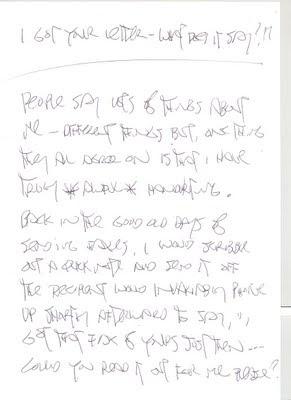 I GOT YOUR LETTER - WHAT DOES IT SAY?!!
PEOPLE SAY LOTS OF THINGS ABOUT
ME - DIFFERENT THINGS BUT, ONE THING
THEY ALL AGREE ON IS THAT I HAVE
TRULY *AWFUL* HANDWRITING.
BACK IN THE GOOD OLD DAYS OF
SENDING FAXES, I WOULD SCRIBBLE
OUT A QUICK NOTE AND SEND IT OFF
THE RECIPIENT WOULD INVARIABLY PHONE
UP SHORTLY AFTERWARD TO SAY, "I
GOT THAT FAX OF YOURS JUST THEN...
COULD YOU READ IT OUT FOR ME PLEASE?